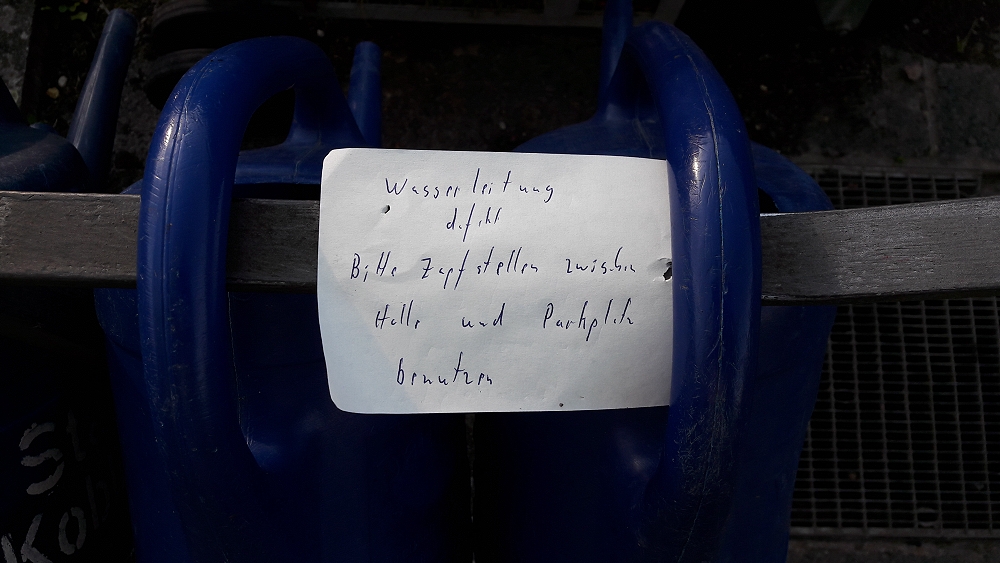 Wasserleitung
defekt
Bitte Zapfstellen zwischen
Halle und Parkplatz
benutzen
St
Ko